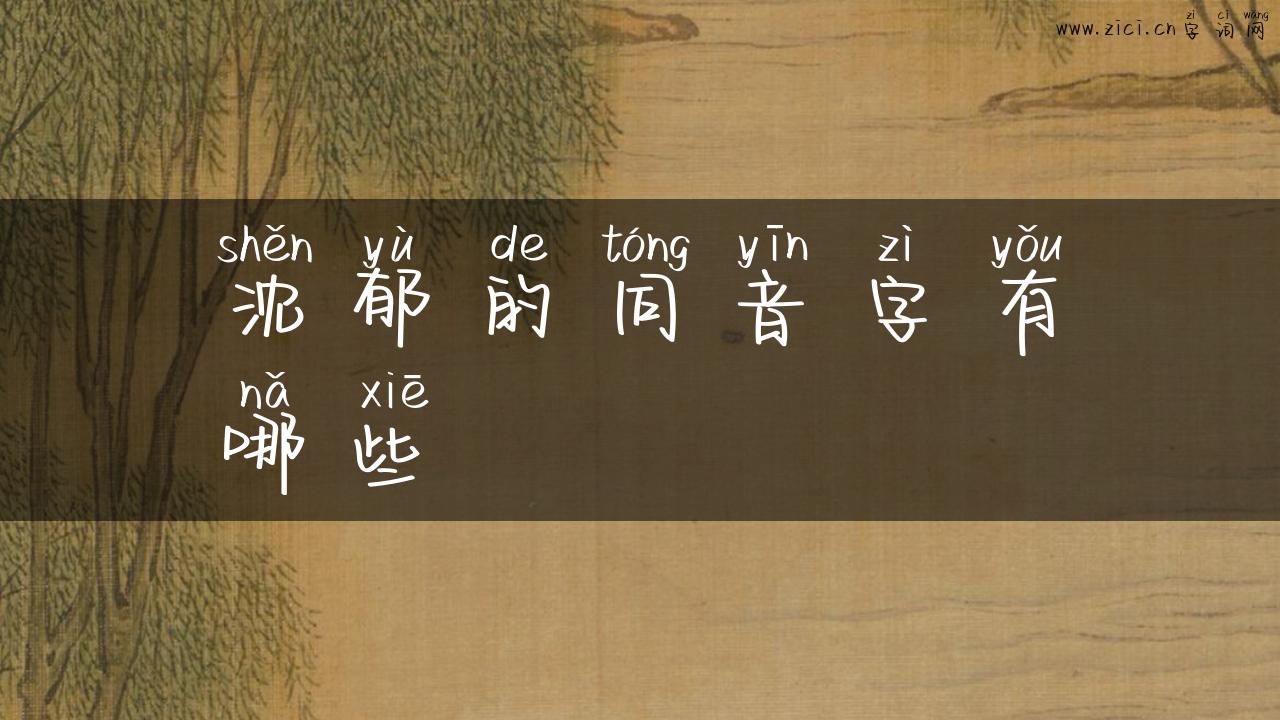 zì cí wǎng
www.zici.cn 字词网
shěn yù de tóng yīn zì yǒu
沈郁的同音字有
nǎ xiē
哪些